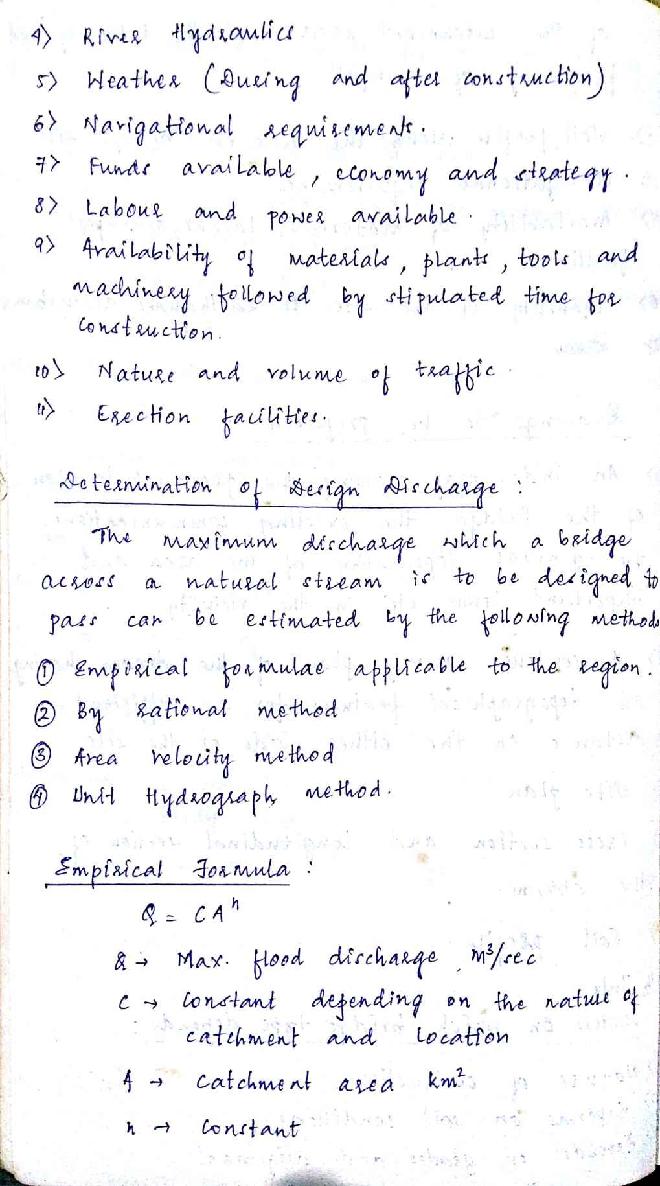 4) River Hydraulics
5) Weather (During and after construction)
6) Navigational requirements.
7) Funds available, economy and strategy.
8) Labour and power available.
9) Availability of materials, plants, tools and
machinery followed by stipulated time for
construction.
10) Nature and volume of traffic.
11) Erection facilities.
Determination of Design Discharge :
The maximum discharge which a bridge
across a natural stream is to be designed to
pass can be estimated by the following methods
① Empirical formulae applicable to the region.
② By rational method
③ Area velocity method
④ Unit Hydrograph method.
Empirical Formula :
Q = CAⁿ
Q → Max. flood discharge m³/sec
C → Constant depending on the nature of
catchment and location
A → Catchment area km²
n → Constant